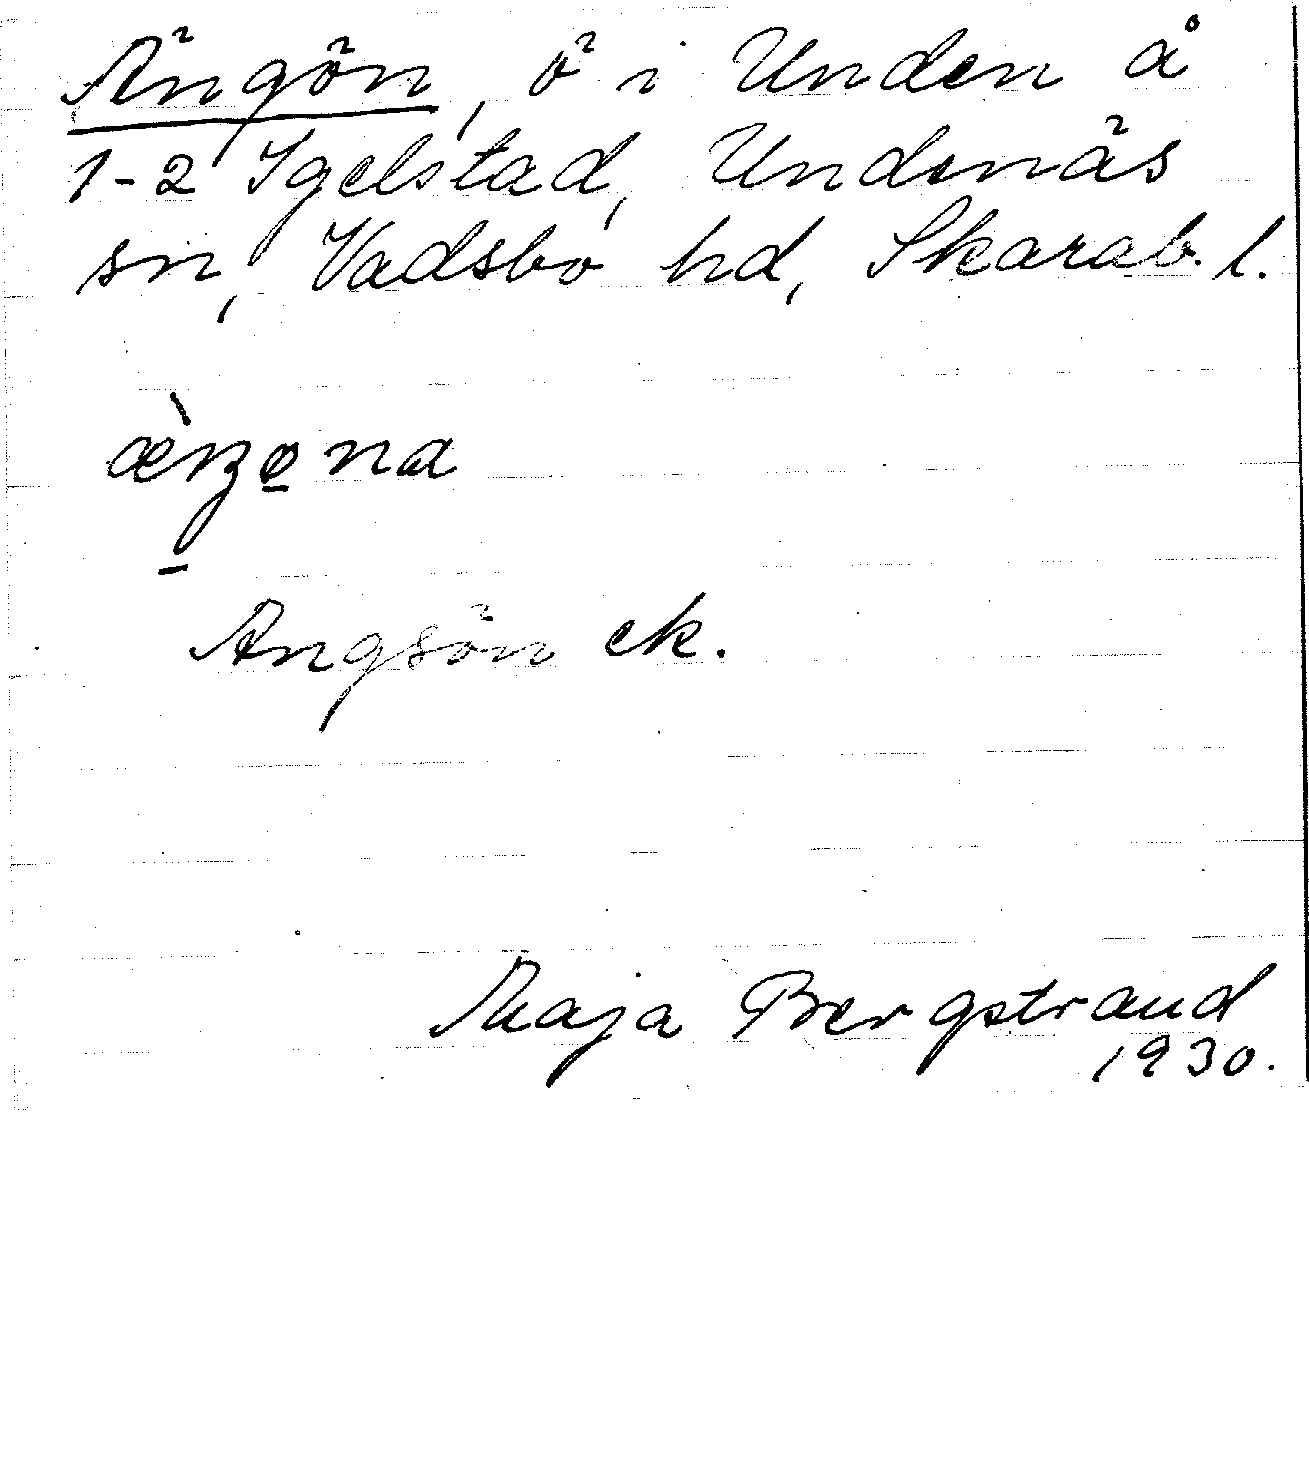 Ängön, ö i Unden å
1-2 Igelstad, Undenäs
sn, Vadsbo hd, Skarab. l.
Angsön ek.
Maja Bergstrand
1930.